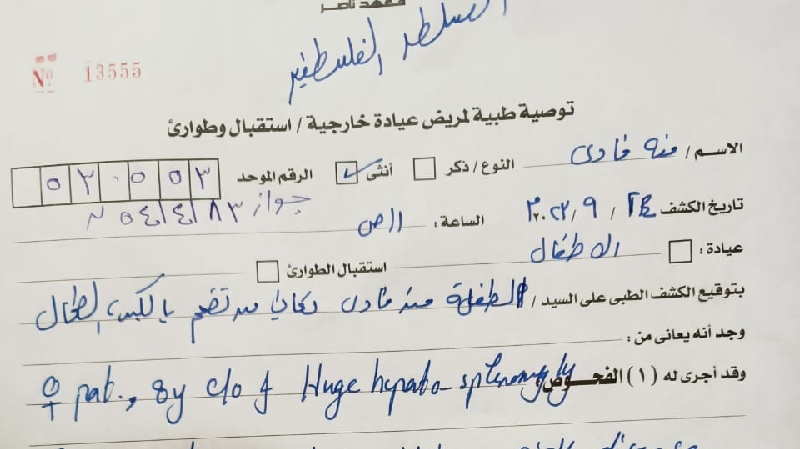 معهد ناصر
السلطه الفلسطينيه
№ 13555
توصية طبية لمريض عيادة خارجية / استقبال وطوارئ
الاســم / منه فادى النوع / ذكر أنثى ✓ الرقم الموحد ٥٢٠٥٥٣
تاريخ الكشف ٢٤ / ٩ / ٢٠٢٢ الساعة : ١١ ص جواز
عيادة : الاطفال استقبال الطوارئ
بتوقيع الكشف الطبى على السيد / الطفلة منه فادى تعانى من تضخم بالكبد والطحال
وجد أنه يعانى من :
وقد أجرى له (١) الفحوص
♀ pat., 8y c/o of Huge hepato-splenomegaly